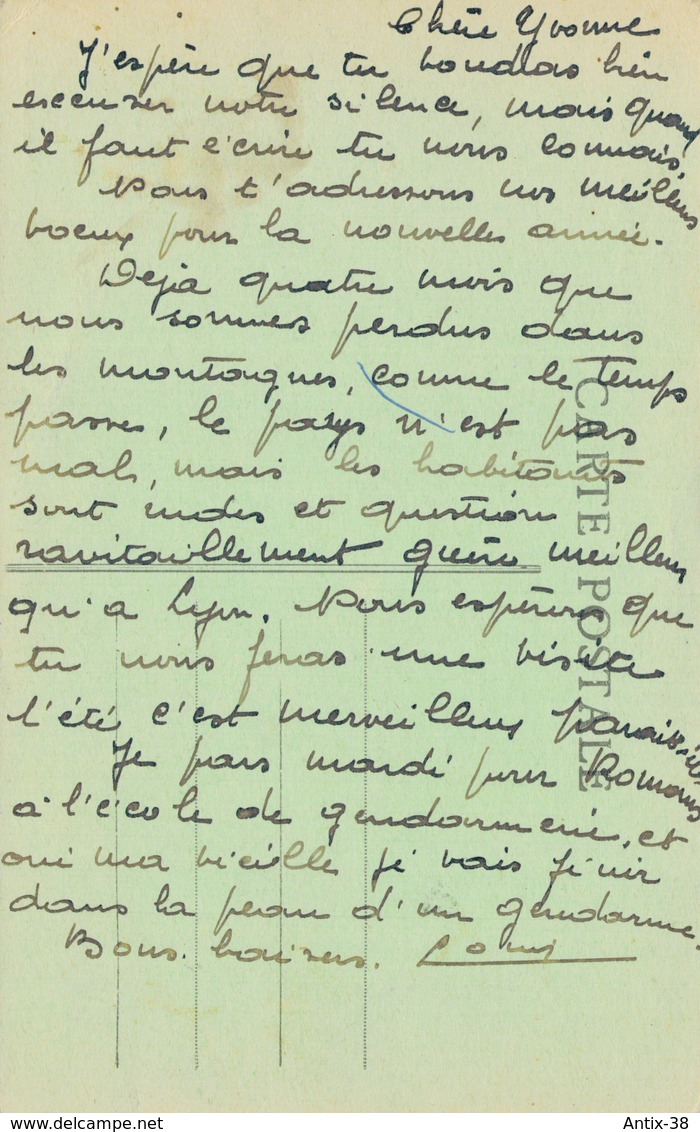 Chère Yvonne
J'espère que tu voudras bien
excuser notre silence, mais quand
il faut écrire tu nous connais.
Nous t'adressons nos meilleurs
voeux pour la nouvelles année.
Déjà quatre mois que
nous sommes perdus dans
les montagnes, comme le temps
passe, le pays n'est pas
mal, mais les habitants
sont rudes et question
ravitaillement guère meilleur
qu'a Lyon. Nous espérons que
tu nous feras une visite
l'été c'est merveilleux parait-il
Je pars mardi pour Romans
à l'école de gendarmerie, et
oui ma vieille je vais finir
dans la peau d'un gendarme.
Bons baisers.
CARTE POSTALE
Antix-38